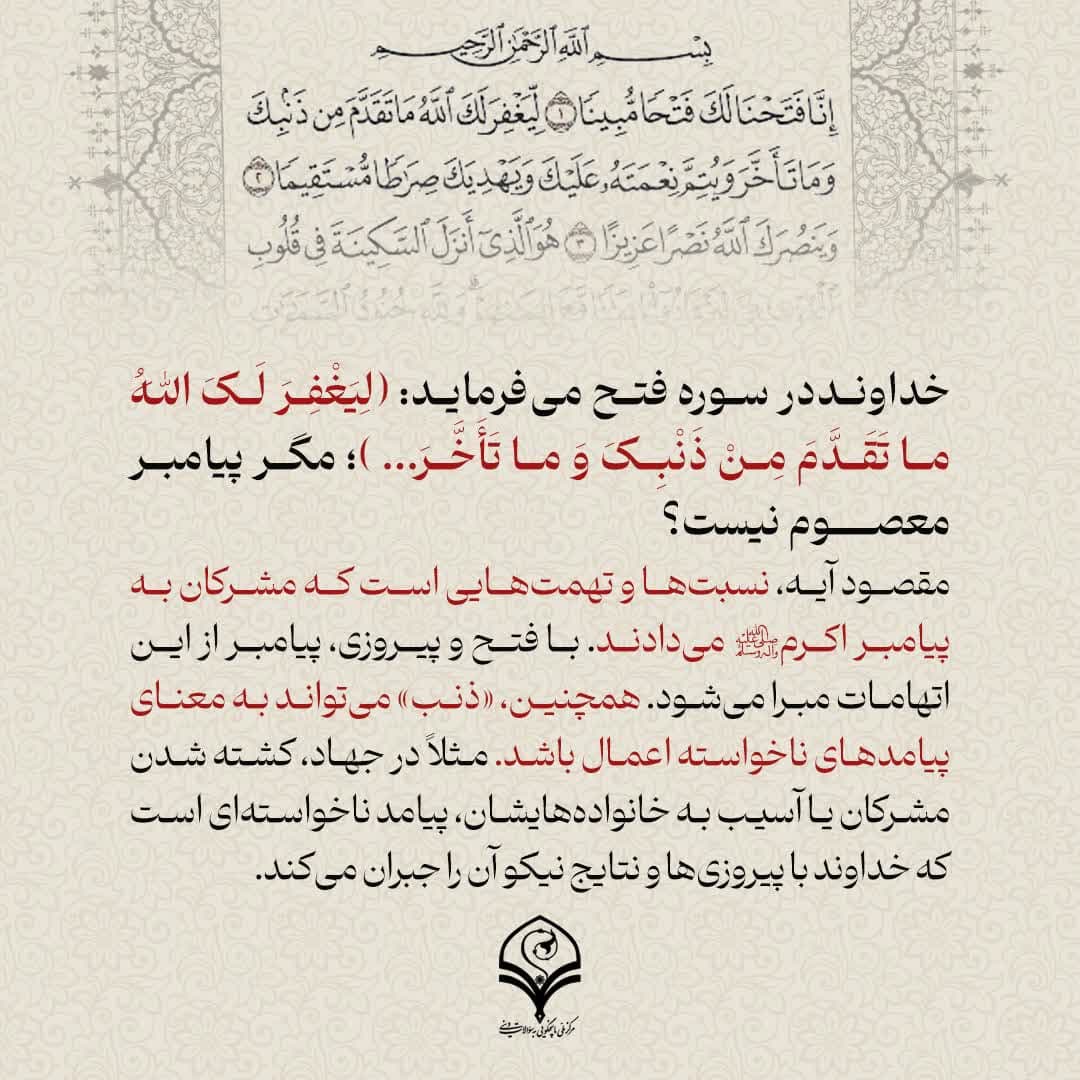 بِسْمِ ٱللَّهِ ٱلرَّحْمَٰنِ ٱلرَّحِيمِ
إِنَّا فَتَحْنَا لَكَ فَتْحًا مُّبِينًا ١ لِّيَغْفِرَ لَكَ ٱللَّهُ مَا تَقَدَّمَ مِن ذَنۢبِكَ
وَمَا تَأَخَّرَ وَيُتِمَّ نِعْمَتَهُۥ عَلَيْكَ وَيَهْدِيَكَ صِرَٰطًا مُّسْتَقِيمًا ٢
وَيَنصُرَكَ ٱللَّهُ نَصْرًا عَزِيزًا ٣ هُوَ ٱلَّذِىٓ أَنزَلَ ٱلسَّكِينَةَ فِى قُلُوبِ
خداونددر سوره فتح می‌فرماید: (لِیَغْفِرَ لَکَ اللهُ
ما تَقَدَّمَ مِنْ ذَنْبِکَ وَ ما تَأَخَّرَ... )؛ مگر پیامبر
معصوم نیست؟
مقصود آیه، نسبت‌ها و تهمت‌هایی است که مشرکان به
پیامبر اکرمﷺ می‌دادند. با فتح و پیروزی، پیامبر از این
اتهامات مبرا می‌شود. همچنین، «ذنب» می‌تواند به معنای
پیامدهای ناخواسته اعمال باشد. مثلاً در جهاد، کشته شدن
مشرکان یا آسیب به خانواده‌هایشان، پیامد ناخواسته‌ای است
که خداوند با پیروزی‌ها و نتایج نیکو آن را جبران می‌کند.
مرکز ملی پاسخگویی به سؤالات دینی